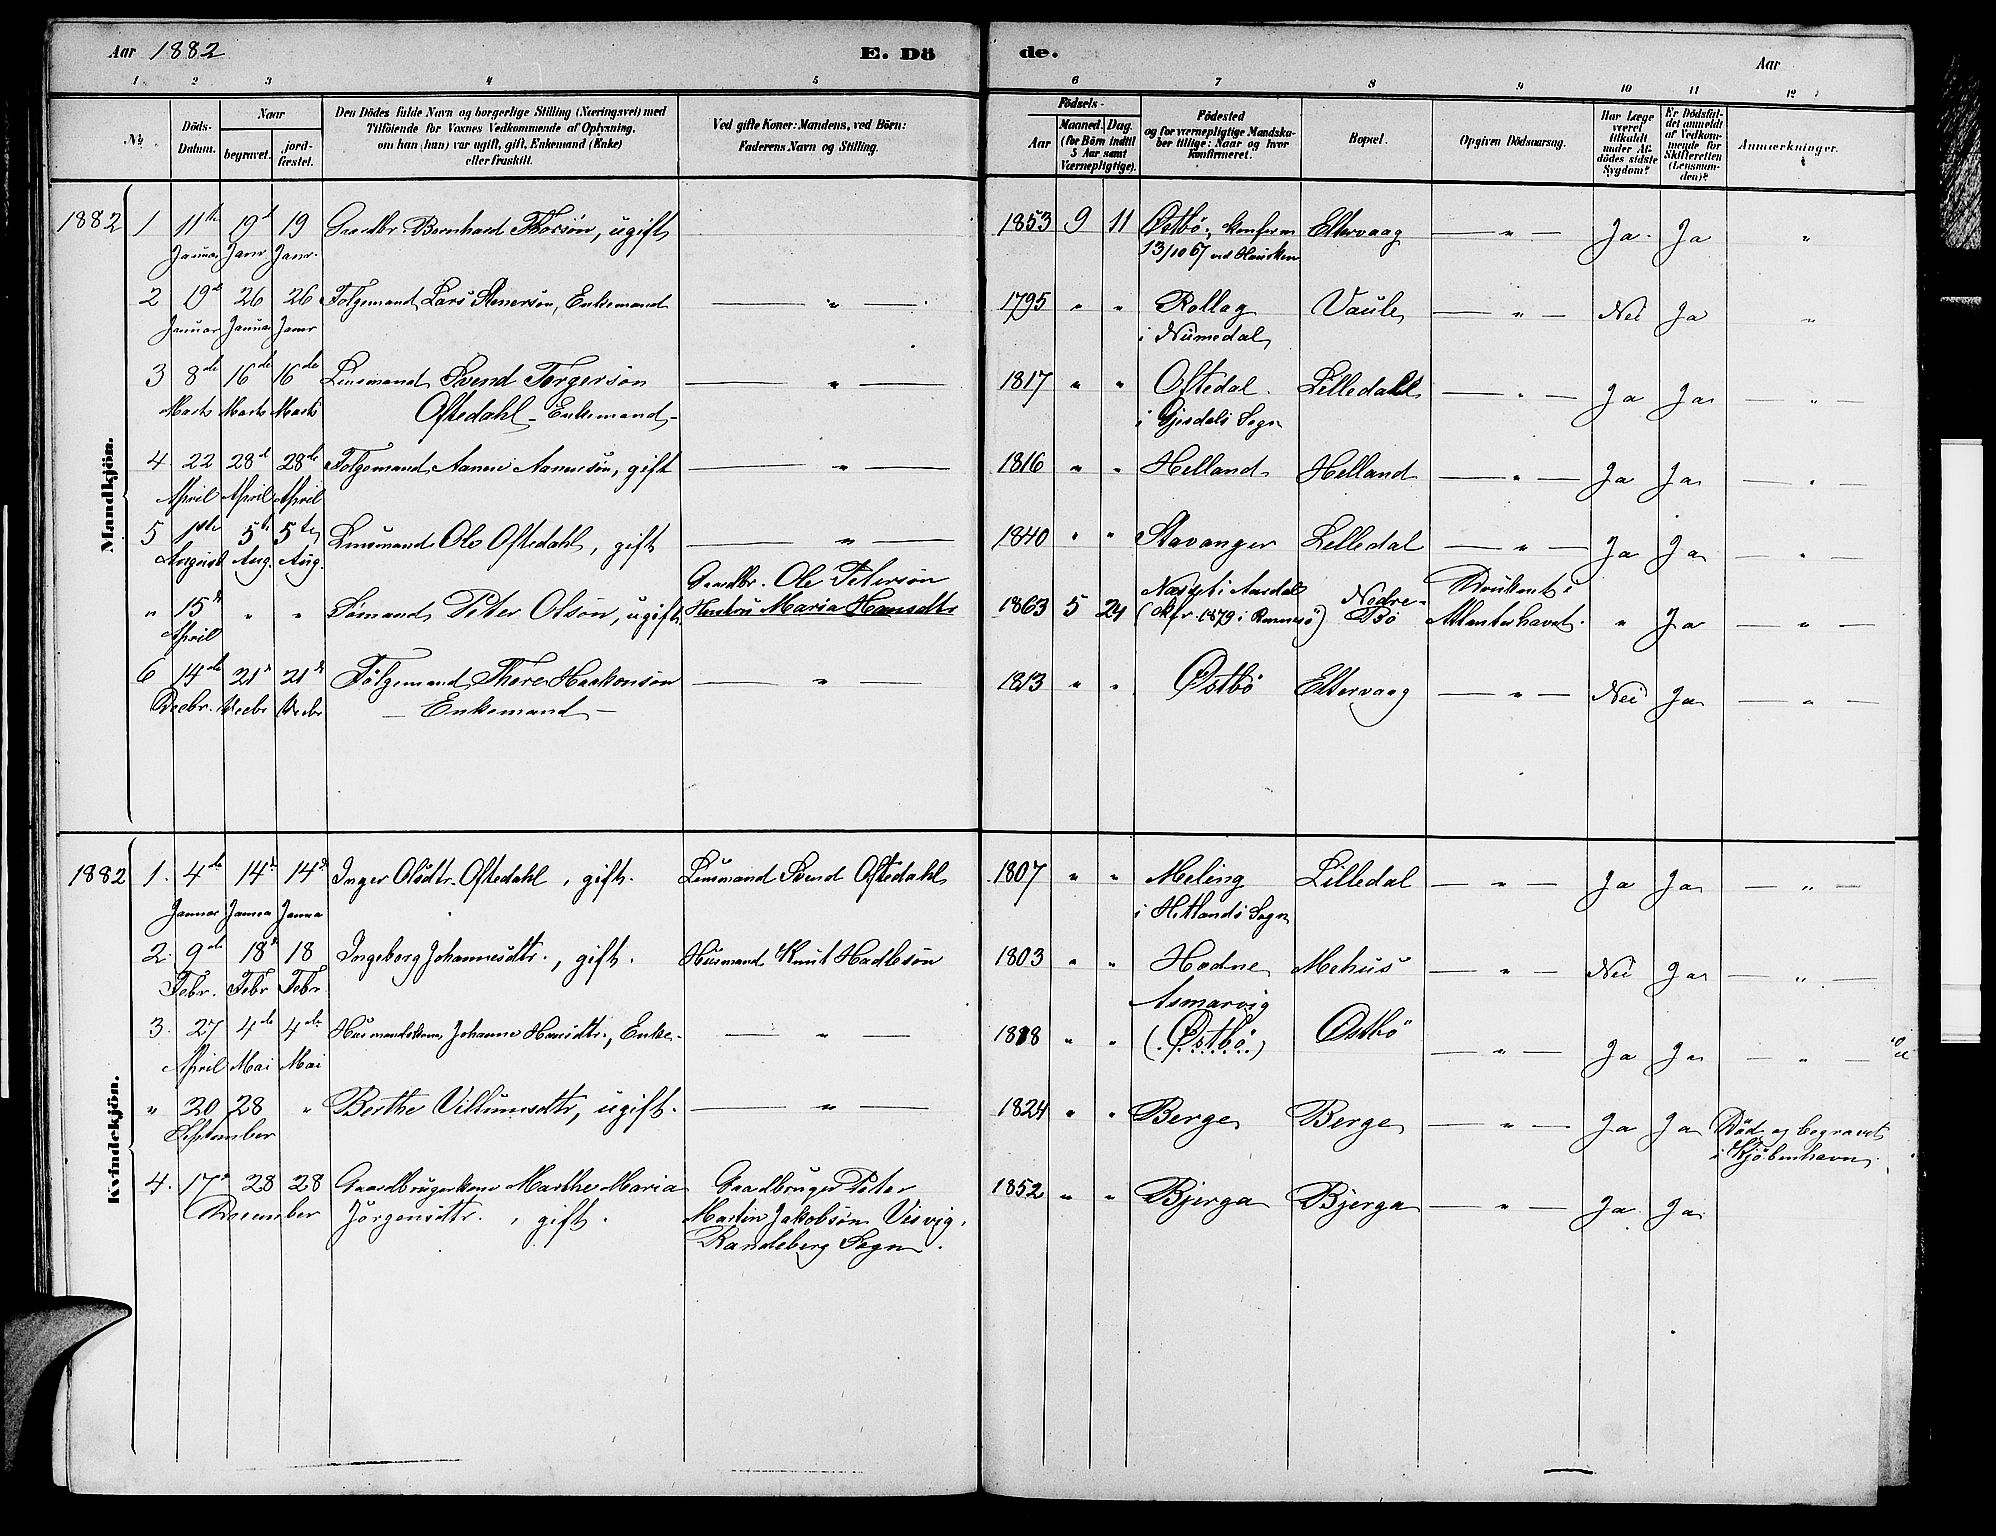 Aar 1882 E. Dö de. Aar
1 2 3 4 5 6 7 8 9 10 11 12
№ Döds-Datum. Naar begravet. jord-fæstet. Den Dödes fulde Navn og borgerlige Stilling (Næringsvei) med Tilföiende for Voxnes Vedkommende af Oplysning, om han (hun) var ugift, gift, Enkemand (Enke) eller fraskilt. Ved gifte Koner: Mandens, ved Börn: Faderens Navn og Stilling. Födsels- Aar Maaned. Dag. (for Börn indtil 5 Aar samt Værnepligtige). Födested og for værnepligtige Mandska-ber tillige: Naar og hvor konfirmeret. Bopæl. Opgiven Dödsaarsag. Har Læge været tilkaldt under Af-dödes sidste Sygdom? Er Dödsfal-det anmeldt af Vedkom-mende for Skifteretten (Lensman-den)? Anmærkninger.
Mandkjön.
1882 1 11te 19de 19 Gaardbr. Bernhard Thorsön, ugift 1853 9 11 Østbö, konferm Eltervaag — " — Ja Ja "
Januar Janr Janr. 13/10 67 ved Hausken
2 19de 26 26 Folgemand Lars Stenersön, Enkemand — " — 1795 " " Rollag Vaule — " — Nei Ja "
Januar Januar Janr i Numedal
3 8de 16de 16de Lensmand Svend Torgersön — " — 1817 " " Oftedal Lilledahl — " — Ja Ja — " —
Marts Marts Marts Oftedahl - Enkemand - i Gjesdals Sogn
4 22 28de 28de Folgemand Aanen Aanensön, gift — " — 1816 " " Helland Helland — " — Ja Ja — " —
April April April
5 1ste 5te 5te Lensmand Ole Oftedahl, gift — " — 1840 " " Stavanger Lilledal — " — Ja Ja — " —
August Aug. Aug.
Gaardbr. Ole Petersön
" 15de " " Sömand Peter Olsön, ugift Hustru Maria Hansdtr 1863 5 24 (Kfr 1879 i Rennesö) Nedre-Bö Druknet i Atlanterhavet. " Ja — " —
April
6 14de 21de 21de Fölgemand Thore Haakonsön — " — 1813 " " Østbö Eltervaag — " — Nei Ja — " —
Decbr. Decbr Decbr — Enkemand —
Kvindekjön.
1882 1. 4de 14de 14de Inger Olsdtr. Oftedahl, gift. Lensmand Svend Oftedahl 1807 " " Meling Lilledal — " — Ja Ja — " —
Januar Janua Janua i Hetlands Sogn
2. 9de 18de 18 Ingeborg Johannesdtr., gift. Husmand Knut Hadlesön 1803 " " Hodne Mehus — " — Nei Ja — " —
Febr. Febr Febr
Asmarvig
3. 27 4de 4de Husmandskone Johanne Hansdtr., Enke. — " — 1818 " " (Østbö) Østbö — " — Ja Ja — " —
April Mai Mai
" 20 28 " Berthe Villumsdtr, ugift. — " — 1824 " " Berge Berge — " — Ja Ja Död og begravet
September i Kjöbenhavn.
4. 17de 28 28 Gaardbrugerkone Marthe Maria Gaardbruger Peter 1852 " " Bjerga Bjerga — " — Ja Ja
December Jörgensdtr., gift. Martin Jakobsön Visvig,
Randeberg Sogn.